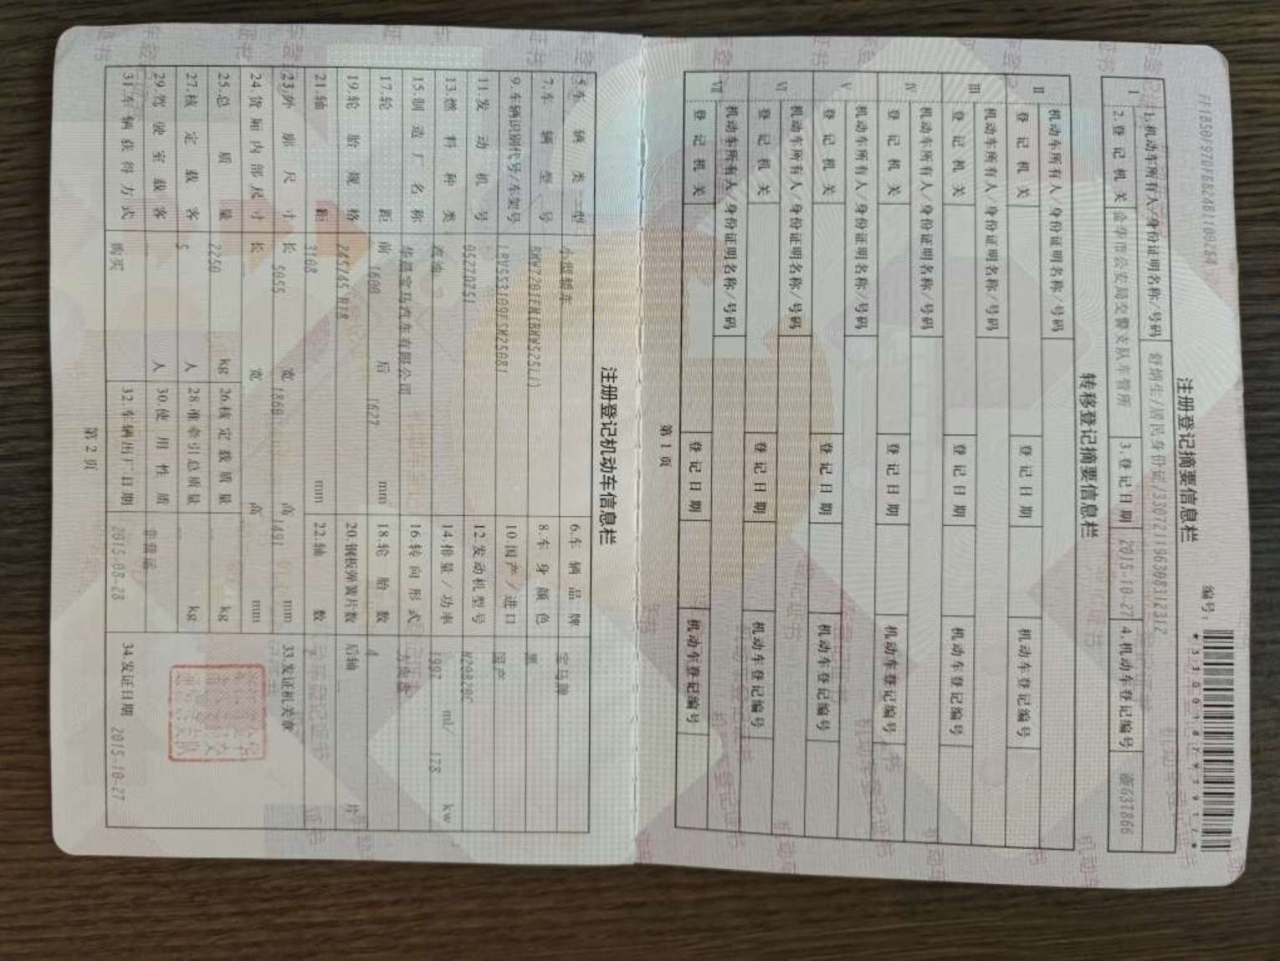 编号：
*330018793917*
注册登记摘要信息栏
I 1.机动车所有人/身份证明名称/号码 舒炳生/居民身份证/330721196308312312
2.登记机关 金华市公安局交警支队车管所 3.登记日期 2015-10-27 4.机动车登记编号 浙G37866
转移登记摘要信息栏
II 机动车所有人/身份证明名称/号码
登记机关 登记日期 机动车登记编号
III 机动车所有人/身份证明名称/号码
登记机关 登记日期 机动车登记编号
IV 机动车所有人/身份证明名称/号码
登记机关 登记日期 机动车登记编号
V 机动车所有人/身份证明名称/号码
登记机关 登记日期 机动车登记编号
VI 机动车所有人/身份证明名称/号码
登记机关 登记日期 机动车登记编号
VII 机动车所有人/身份证明名称/号码
登记机关 登记日期 机动车登记编号
第1页
注册登记机动车信息栏
5.车辆类型 小型轿车 6.车辆品牌 宝马牌
7.车辆型号 8.车身颜色 黑
9.车辆识别代号/车架号 10.国产/进口 国产
11.发动机号 05270751 12.发动机型号 N20B20C
13.燃料种类 汽油 14.排量/功率 1997 ml/ 178 kw
15.制造厂名称 华晨宝马汽车有限公司 16.转向形式 方向盘
17.轮距 前 1600 后 1627 mm 18.轮胎数 4
19.轮胎规格 245/45 R18 20.钢板弹簧片数 后轴 片
21.轴距 3108 mm 22.轴数
23.外廓尺寸 长 5055 宽 1868 高 1491 mm 33.发证机关章
24.货厢内部尺寸 长 宽 高 mm
25.总质量 2250 kg 26.核定载质量 kg
27.核定载客 5 人 28.准牵引总质量 kg
29.驾驶室载客 人 30.使用性质 非营运
31.车辆获得方式 购买 32.车辆出厂日期 2015-08-28 34.发证日期 2015-10-27
第2页